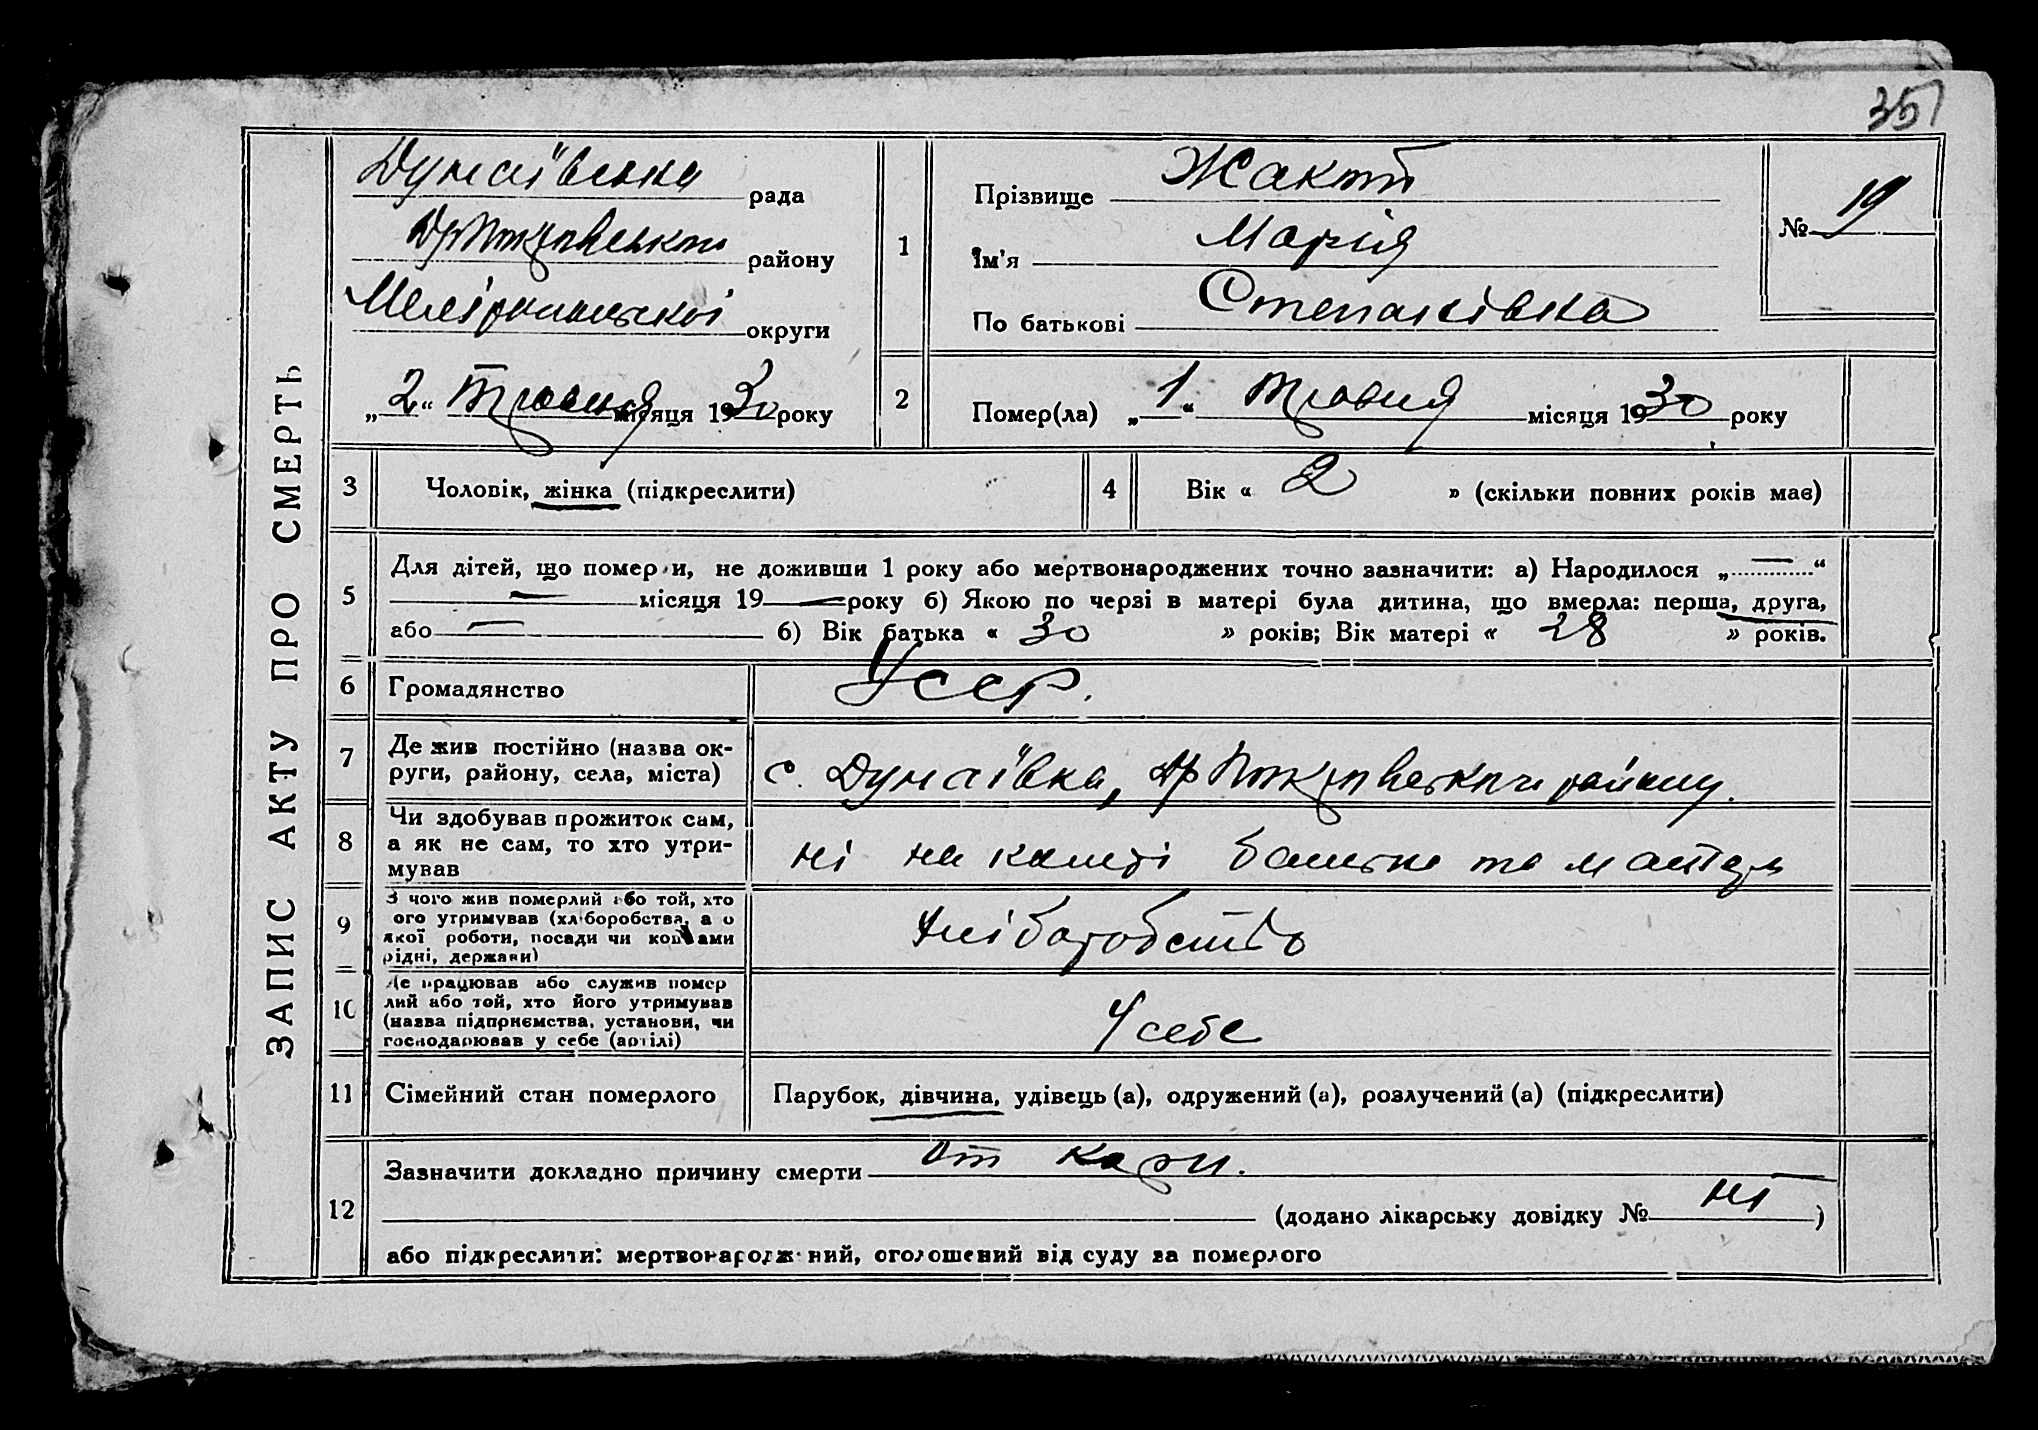 35
ЗАПИС АКТУ ПРО СМЕРТЬ
Дунаївська рада
району
Мелітопольської округи
„2“ Травня місяця 1930 року
1
Прізвище
Ім'я Марія
По батькові Степанівна
№ 19
2
Помер(ла) „1“ Травня місяця 1930 року
3
Чоловік, жінка (підкреслити)
4
Вік « 2 » (скільки повних років має)
5
Для дітей, що померли, не доживши 1 року або мертвонароджених точно зазначити: а) Народилося „—“
— місяця 19— року б) Якою по черзі в матері була дитина, що вмерла: перша, друга,
або — б) Вік батька « 30 » років; Вік матері « 28 » років.
6
Громадянство
Усср.
7
Де жив постійно (назва ок-
руги, району, села, міста)
с. Дунаївка, району.
8
Чи здобував прожиток сам,
а як не сам, то хто утри-
мував
ні на кошті батька та матери
9
З чого жив померлий або той, хто
ого утримував (хліборобства, а о
якої роботи, посади чи коштами
рідні, держави)
Хліборобство
10
Де працював або служив помер
лий або той, хто його утримував
(назва підприємства, установи, чи
господарював у себе (артілі)
У себе
11
Сімейний стан померлого
Парубок, дівчина, удівець (а), одружений (а), розлучений (а) (підкреслити)
12
Зазначити докладно причину смерти От кори.
(додано лікарську довідку № ні)
або підкреслити: мертвонароджений, оголошений від суду за померлого